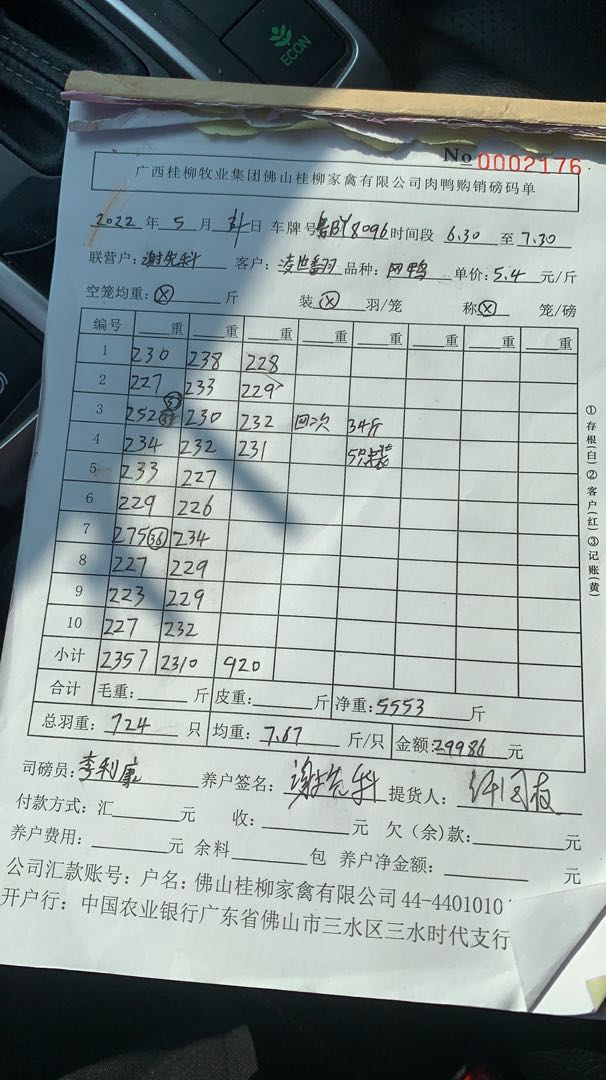 ECON
No 0002176
广西桂柳牧业集团佛山桂柳家禽有限公司肉鸭购销磅码单
2022 年 5 月 31 日 车牌号 粤BY8096 时间段 6.30 至 7.30
联营户: 谢先科 客户: 凌世翻 品种: 肉鸭 单价: 5.4 元/斤
空笼均重: X 斤 装 X 羽/笼 称 X 笼/磅
编号 重 重 重 重 重 重 重
1 230 238 228
2 227 233 229
3 252 33 37 230 232 回次 34斤
4 234 232 231 5只
5 233 227
6 229 226
7 275 36 234
8 227 229
9 223 229
10 227 232
小计 2357 2310 920
合计 毛重: 斤 皮重: 斤 净重: 5553 斤
总羽重: 724 只 均重: 7.67 斤/只 金额: 29986 元
司磅员: 李利廉 养户签名: 谢先科 提货人:
付款方式: 汇 元 收: 元 欠(余)款: 元
养户费用: 元 余料 包 养户净金额: 元
公司汇款账号: 户名: 佛山桂柳家禽有限公司 44-4401010
开户行: 中国农业银行广东省佛山市三水区三水时代支行
①存根(白)②客户(红)③记账(黄)